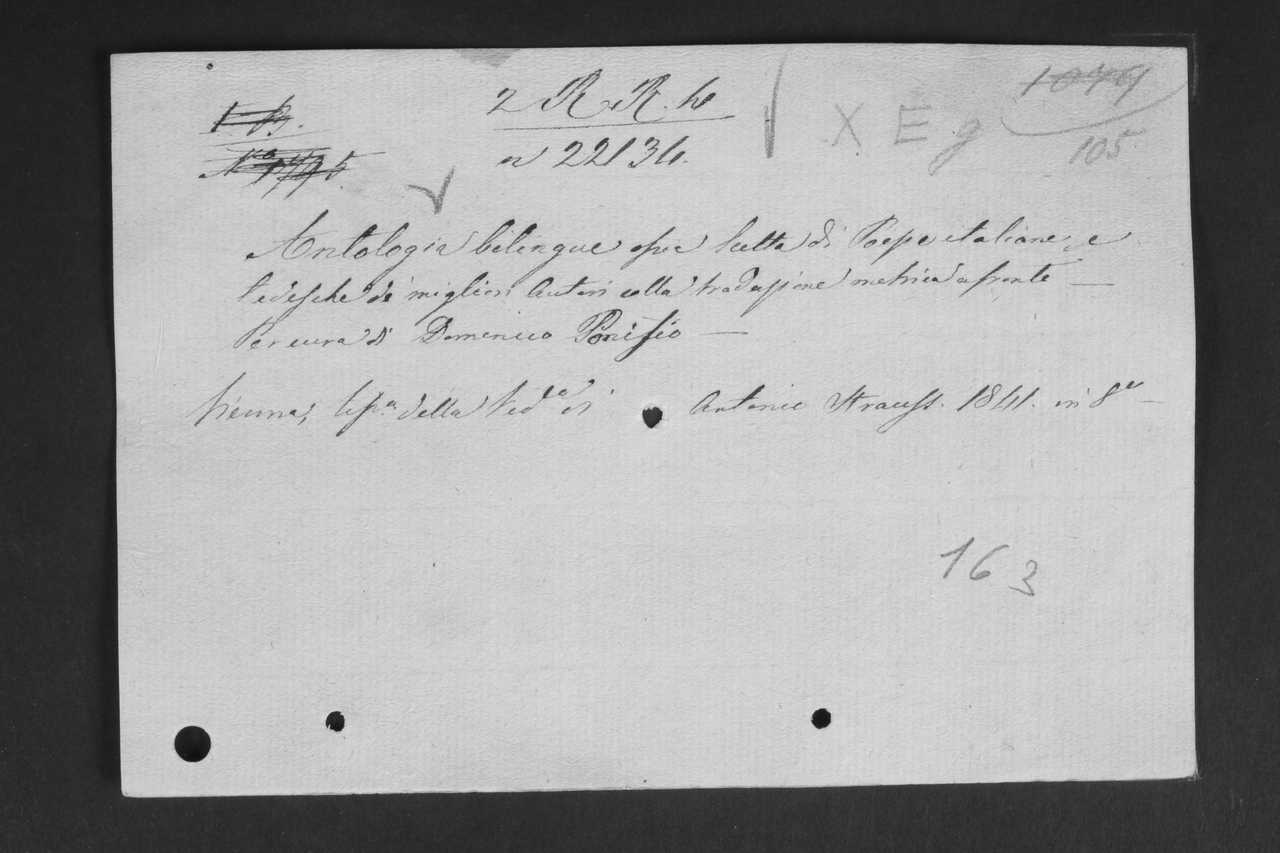 1 B.
2 R. R. h
n 22136.
X E g
1079
105
Antologia bilengue osia Scelta di Poesie italiane e
Tedesche de migliori Autori colla traduzione metrica a fronte —
Per cura di Domenico Ponisio —
Vienna, Tip.a della Ved.a di Antonio Strauss. 1841. in 8° —
163